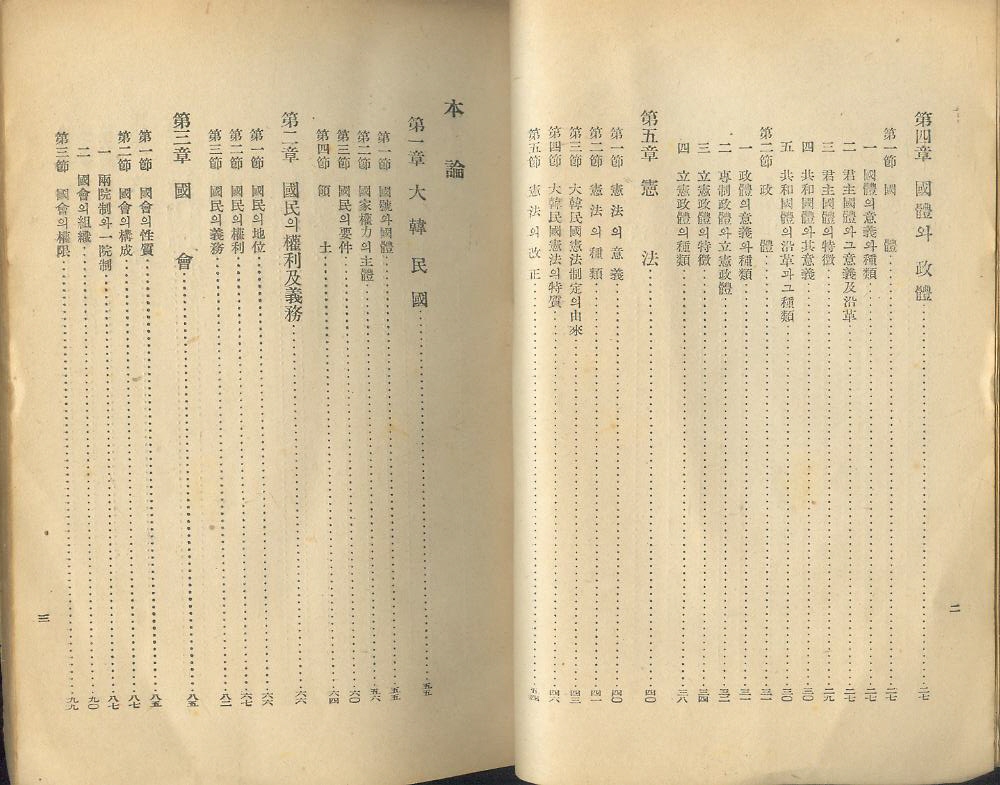 第四章 國體와 政體 二七
第一節 國體 二七
一 國體의 意義와 種類 二七
二 君主國體와 그 意義及沿革 二七
三 君主國體의 特徵 二九
四 共和國體와 其意義 三〇
五 共和國體의 沿革과 그 種類 三〇
第二節 政體 三一
一 政體의 意義와 種類 三一
二 專制政體와 立憲政體 三二
三 立憲政體의 特徵 三四
四 立憲政體의 種類 三八
第五章 憲法 四〇
第一節 憲法의 意義 四〇
第二節 憲法의 種類 四一
第三節 大韓民國憲法制定의 由來 四三
第四節 大韓民國憲法의 特質 四六
第五節 憲法의 改正 五四
二
本論
第一章 大韓民國 五五
第一節 國號와 國體 五五
第二節 國家權力의 主體 五六
第三節 國民의 要件 六〇
第四節 領土 六四
第二章 國民의 權利及義務 六六
第一節 國民의 地位 六六
第二節 國民의 權利 六七
第三節 國民의 義務 八二
第三章 國會 八五
第一節 國會의 性質 八五
第二節 國會의 構成 八七
一 兩院制와 一院制 八七
二 國會의 組織 九〇
第三節 國會의 權限 九九
三